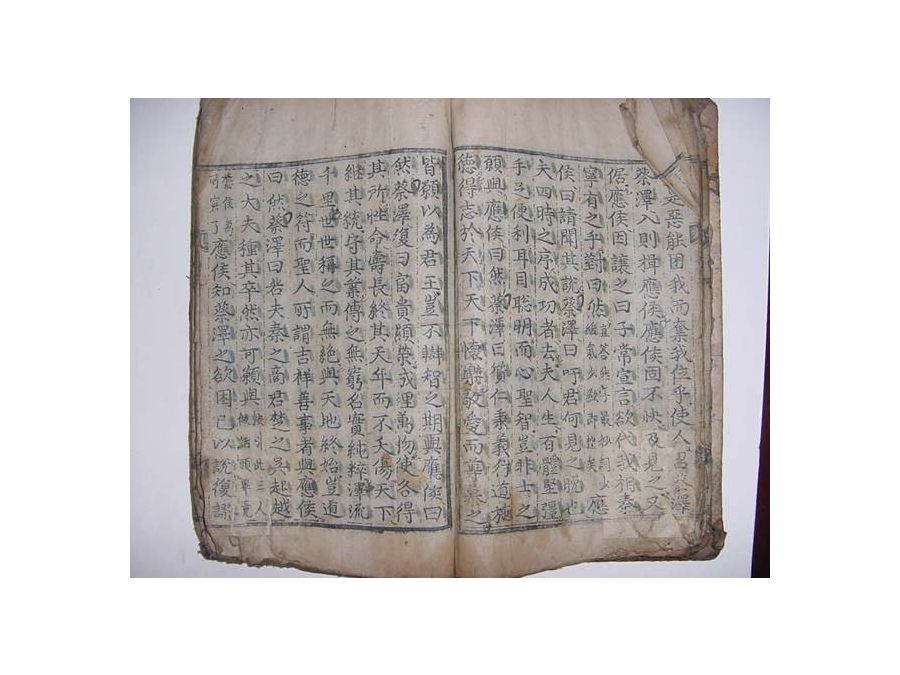 是惡能困我而奪我位乎使人召蔡澤
蔡澤入則揖應侯應侯固不快及見之又
倨應侯因讓之曰子常宣言欲代我相秦
寧有之乎對曰然應
侯曰請聞其說蔡澤曰吁君何見之晚也
夫四時之序成功者去夫人生百體堅彊
手足便利耳目聰明而心聖智豈非士之
願與應侯曰然蔡澤曰質仁秉義行道施
德得志於天下天下懷樂敬愛而尊慕之
皆願以為君王豈不辯智之期與應侯曰
然蔡澤復曰富貴顯榮成理萬物使各得
其所性命壽長終其天年而不夭傷天下
継其統守其業傳之無窮名實純粹澤流
千里世世稱之而無絶與天地終始豈道
德之符而聖人所謂吉祥善事者與應侯
曰然蔡澤曰若夫秦之商君楚之吳起越
之大夫種其卒然亦可願與引此三人做話頭單竟
應侯為所窮了應侯知蔡澤之欲困已以說復謬